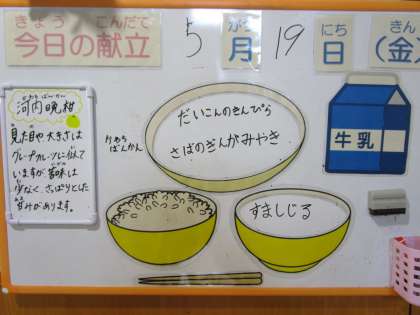 きょう こんだて
今日の献立
5
がつ
月
19
にち
日
きん
(金)
かわち ばんかん
河内晩柑
見た目や大きさは
グレープフルーツに似て
いますが、苦味は
少なく、さっぱりとした
甘みがあります。
かわち
ばんかん
だいこんのきんぴら
さばのぎんがみやき
牛乳
すましじる